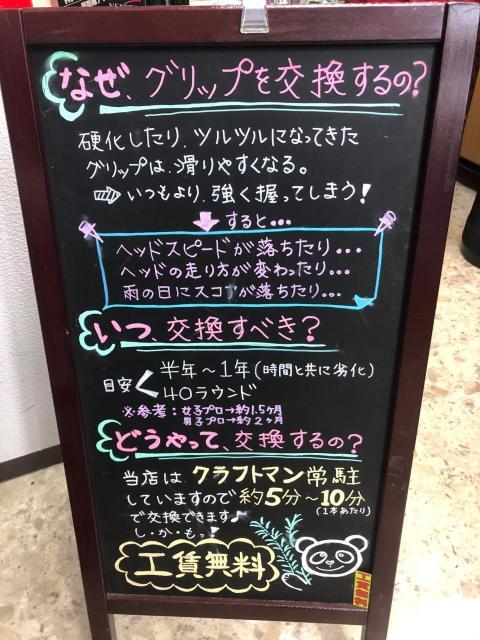 なぜ、グリップを交換するの?
硬化したり、ツルツルになってきた
グリップは、滑りやすくなる。
⇨ いつもより、強く握ってしまう!
↓ すると・・・
ヘッドスピードが落ちたり・・・
ヘッドの走り方が変わったり・・・
雨の日にスコアが落ちたり・・・
いつ、交換すべき?
目安 < 半年～1年(時間と共に劣化)
40ラウンド
※参考: 女子プロ→約1.5ヶ月
男子プロ→約2ヶ月
どうやって、交換するの?
当店は、クラフトマン常駐
していますので 約5分～10分
(1本あたり)
で交換できます♪
し・か・もっ!
工賃無料
工賃無料